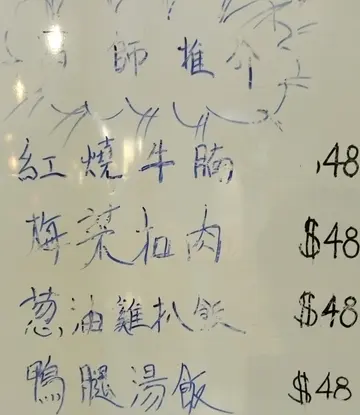 廚師推介
紅燒牛腩 $48
梅菜扣肉 $48
葱油雞扒飯 $48
鴨腿湯飯 $48